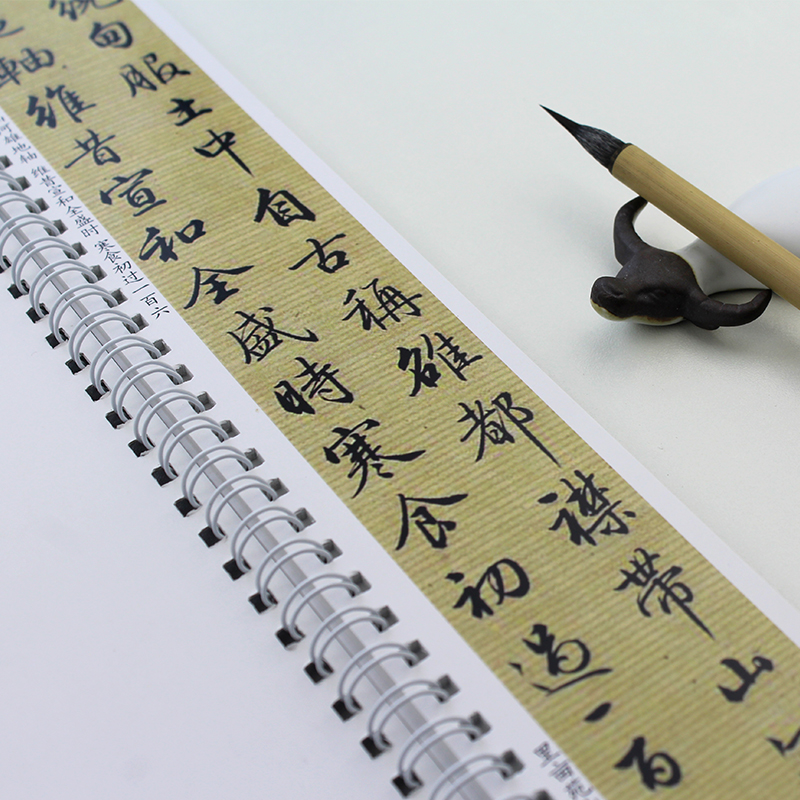 甸服土中自古稱雄都襟帶山
軸維昔宣和全盛時寒食初過一百
河雄地轴 维昔宣和全盛时 寒食初过一百六